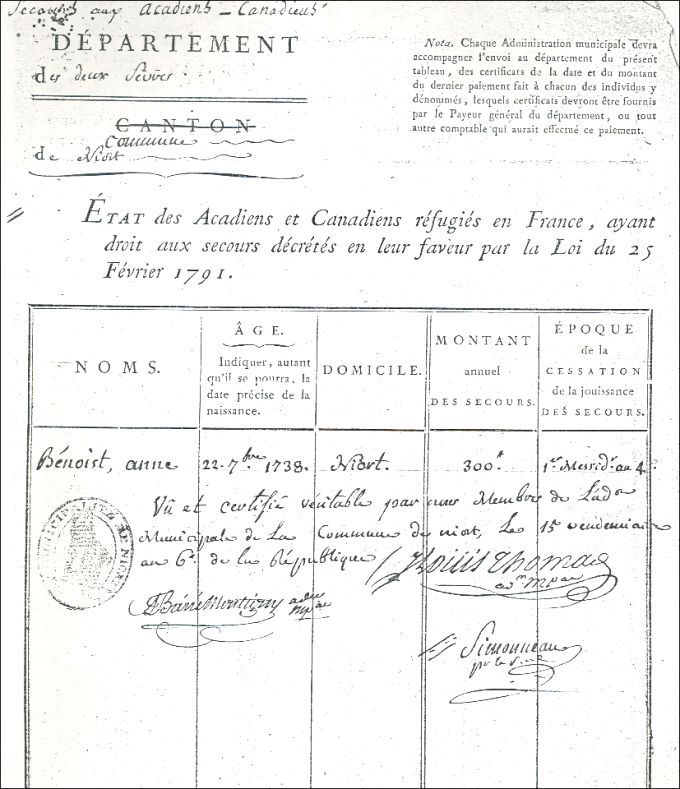 Secours aux Acadiens - Canadiens
DÉPARTEMENT
des deux Sèvres
CANTON
Commune
de Niort
Nota. Chaque Administration municipale devra
accompagner l'envoi au département du présent
tableau, des certificats de la date et du montant
du dernier paiement fait à chacun des individus y
dénomés, lesquels certificats devront être fournis
par le Payeur général du département, ou tout
autre comptable qui aurait effectué ce paiement.
ÉTAT des Acadiens et Canadiens réfugiés en France, ayant
droit aux secours décrétés en leur faveur par la Loi du 25
Février 1791.
NOMS.
ÂGE.
Indiquer, autant
qu'il se pourra, la
date précise de la
naissance.
DOMICILE.
MONTANT
annuel
DES SECOURS.
ÉPOQUE
de la
CESSATION
de la jouissance
DES SECOURS.
Bénoist, anne
22. 7bre 1738.
Niort.
300#
1er Messidr. an 4.
Vû et certifié véritable par nous Membres de L'adon
Municipale de La Commune de niort, Le 15 vendemiaire
an 6e de la République
Louis Thomas
adon mpale
Simonneau